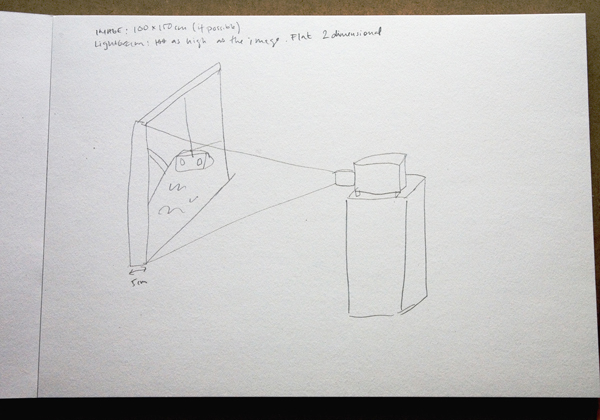 IMAGE: 100 x 150 cm (if possible)
Lightbeam: as high as the image. Flat 2 dimensional
5cm